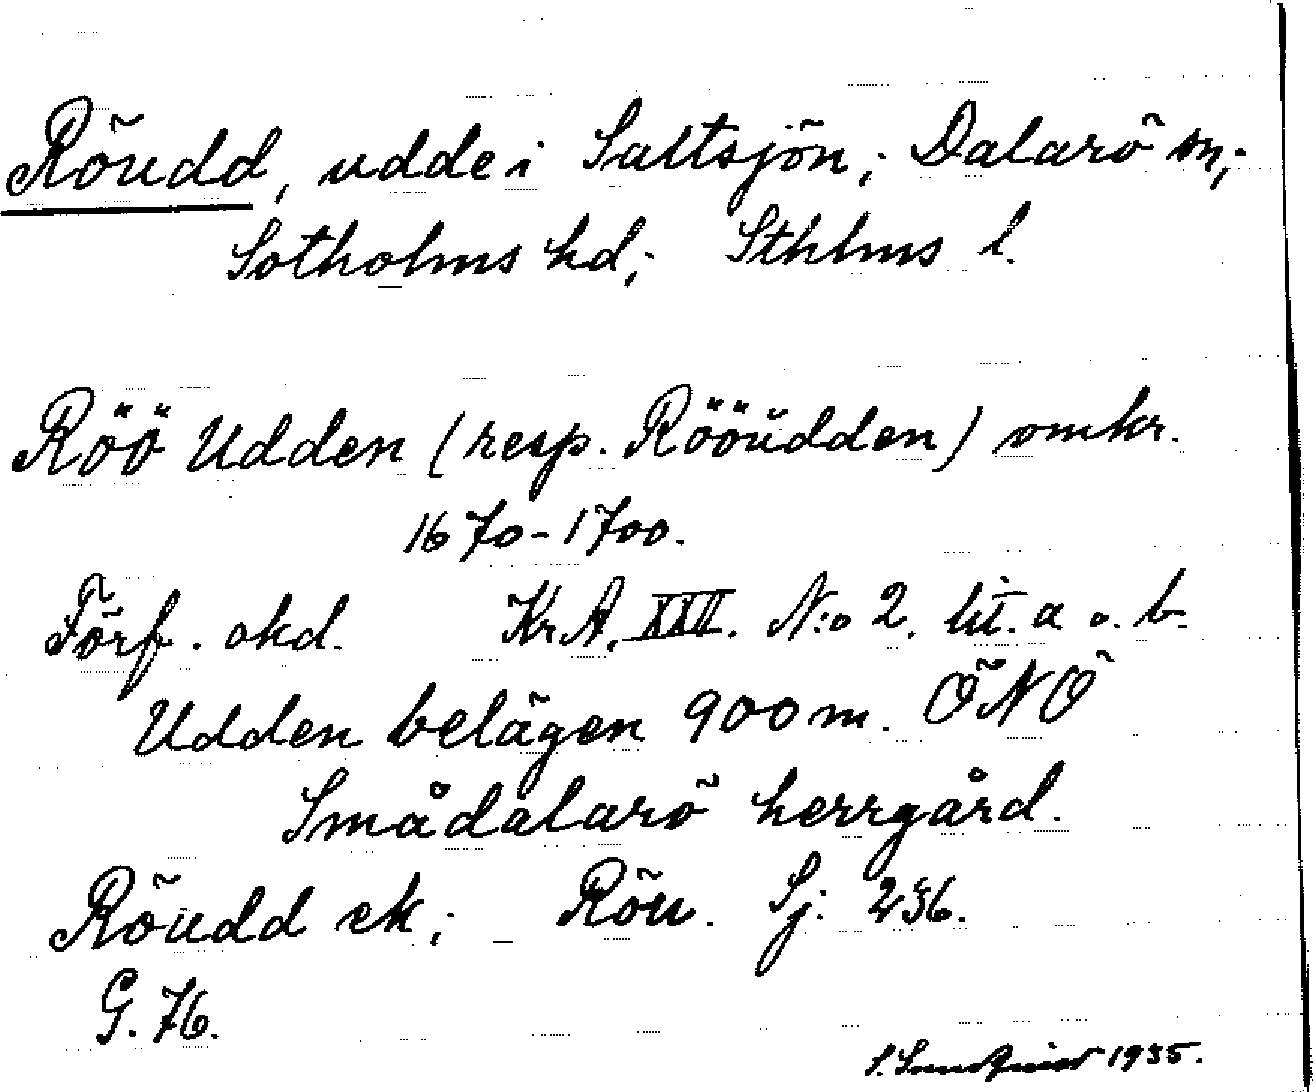 Röudd, udde i Saltsjön; Dalarö sn;
Sotholms hd; Sthlms l.
Röö Udden (resp. Rööŭdden) omkr.
1670-1700.
Förf. okd. KrA, XXII. N:o 2. lit. a o. b.
Udden belägen 900 m. ÖNÖ
Smådalarö herrgård.
Röudd ek; Röu. Sj. 236.
G. 76.
1935.